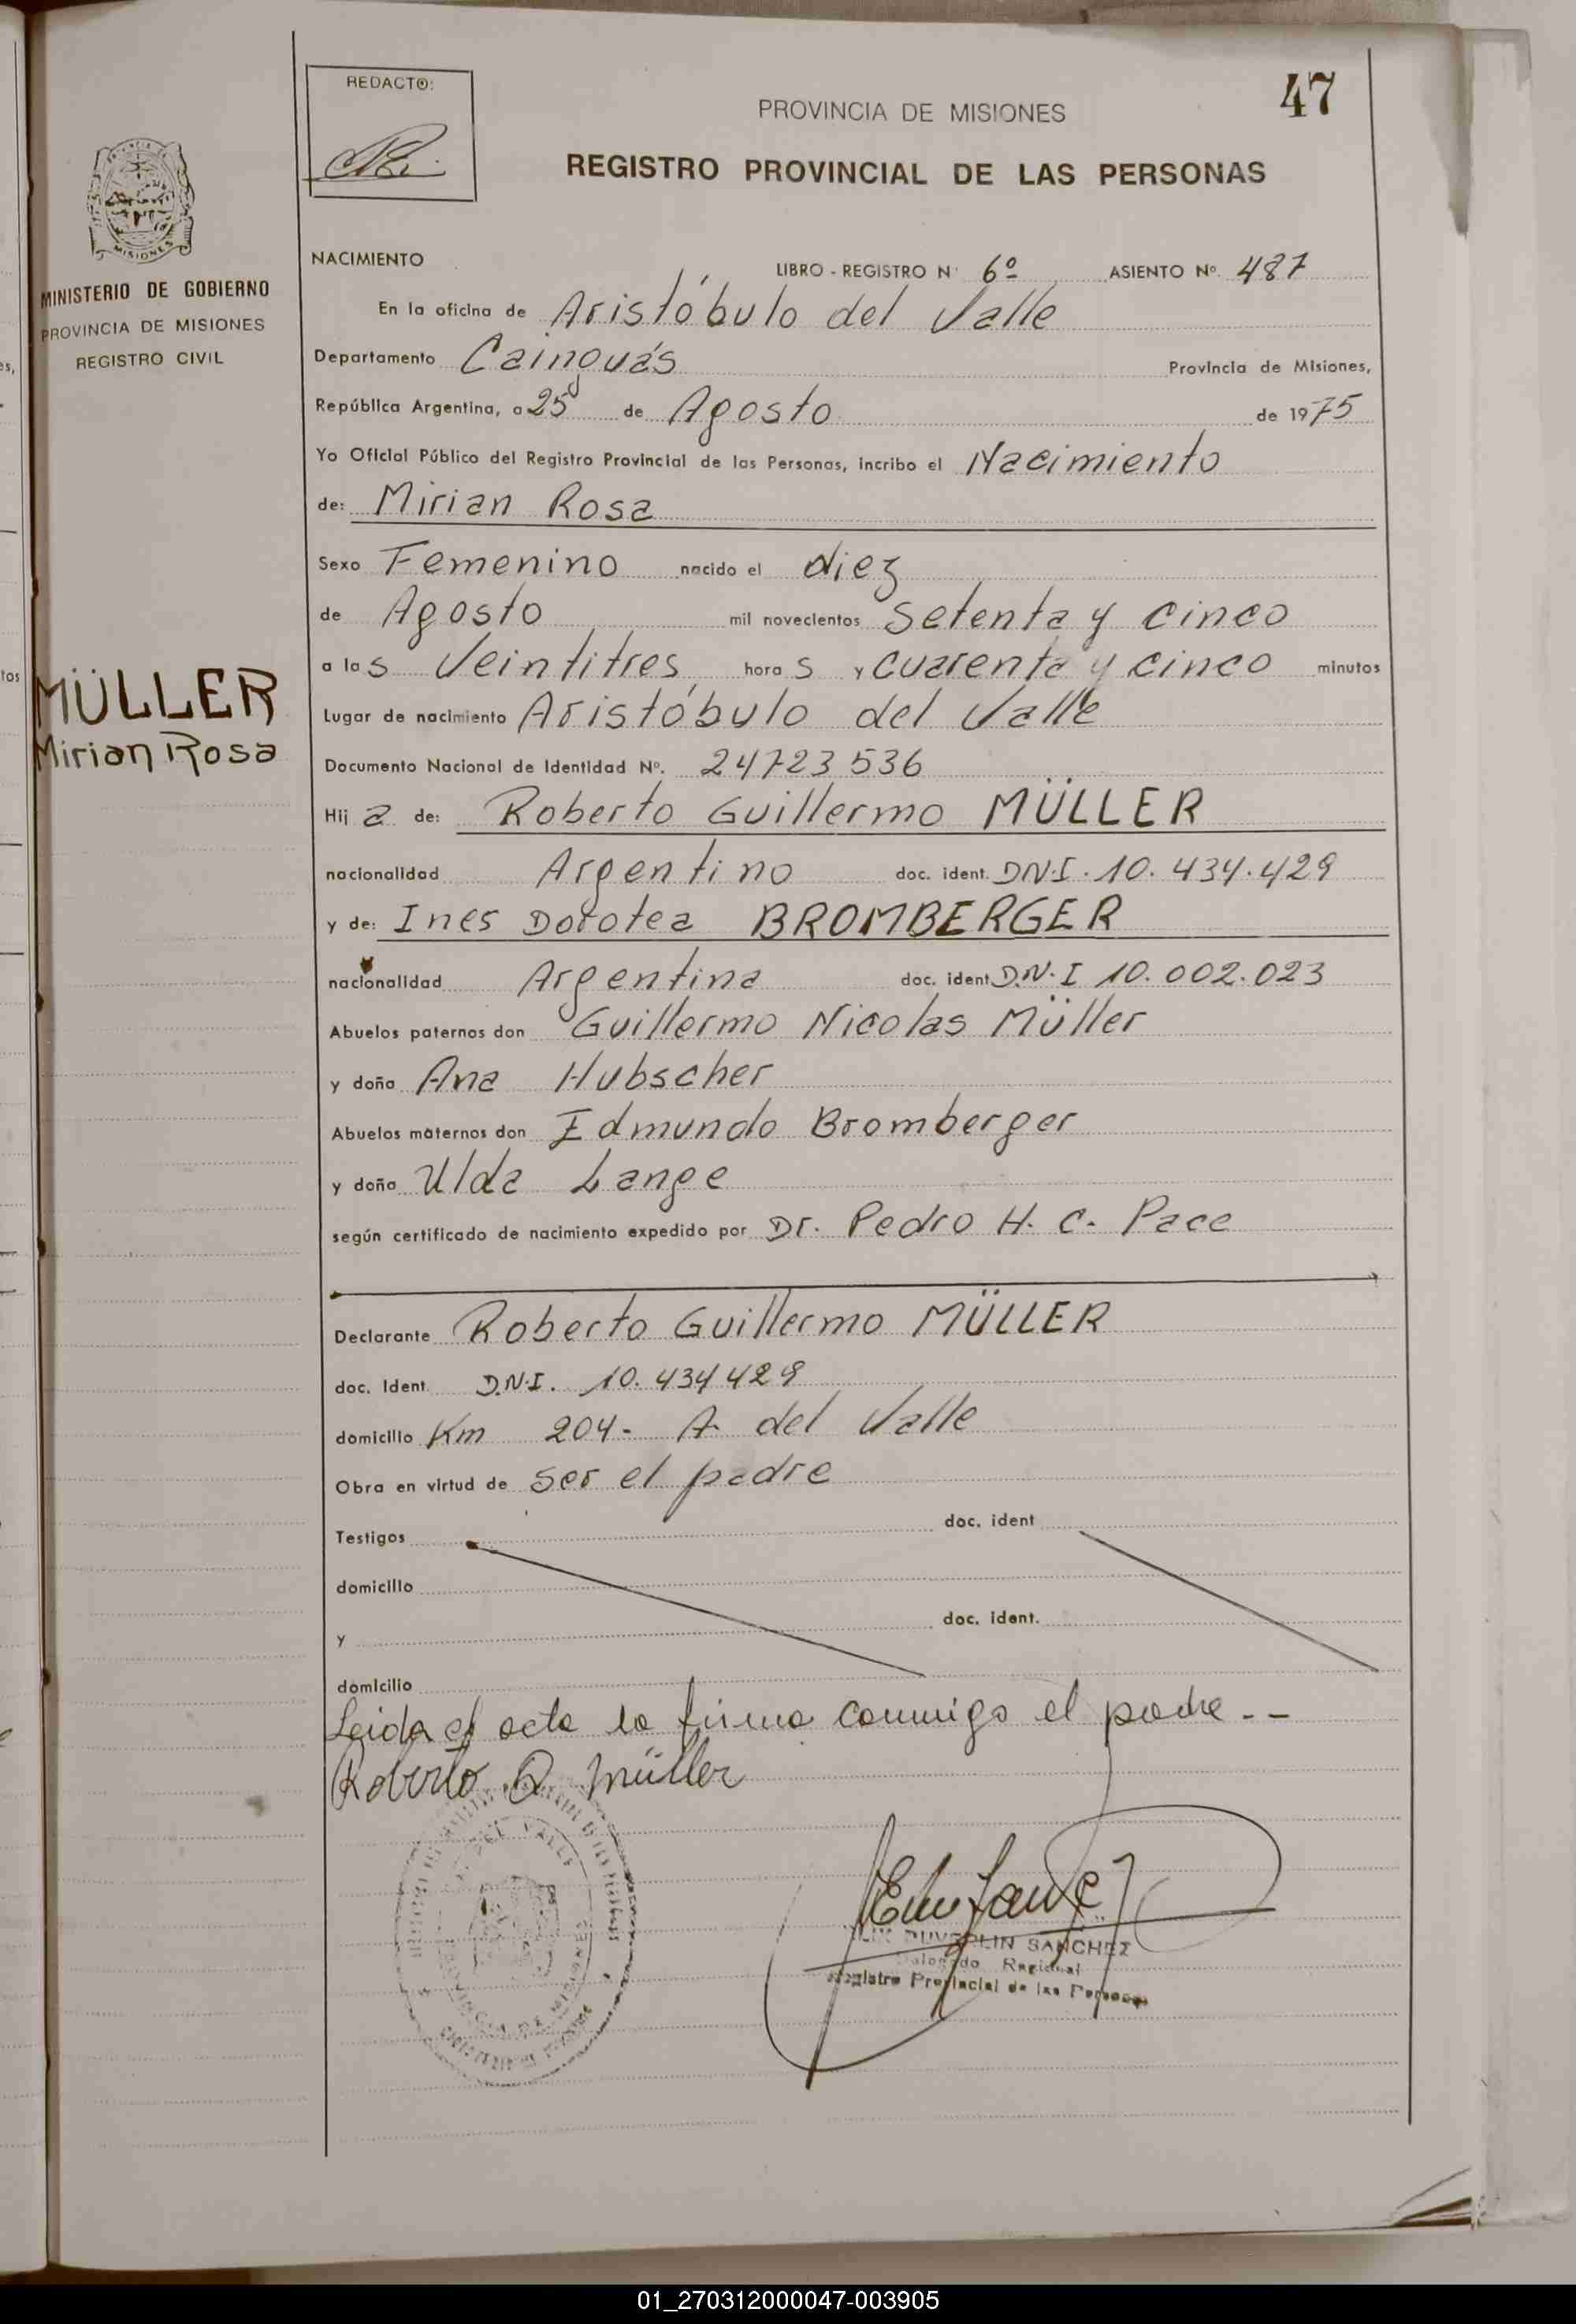 REDACTO:
47
PROVINCIA DE MISIONES
REGISTRO PROVINCIAL DE LAS PERSONAS
MISIONES
MINISTERIO DE GOBIERNO
PROVINCIA DE MISIONES
REGISTRO CIVIL
MÜLLER
Mirian Rosa
NACIMIENTO LIBRO - REGISTRO N° 6º ASIENTO Nº 487
En la oficina de Aristóbulo del Valle
Departamento Cainguás Provincia de Misiones,
República Argentina, a 25 de Agosto de 1975
Yo Oficial Público del Registro Provincial de las Personas, incribo el Nacimiento
de: Mirian Rosa
Sexo Femenino nacido el diez
de Agosto mil novecientos setenta y cinco
a las veintitres horas y cuarenta y cinco minutos
Lugar de nacimiento Aristóbulo del Valle
Documento Nacional de Identidad Nº. 24723536
Hija de: Roberto Guillermo MÜLLER
nacionalidad Argentino doc. ident. D.N.I. 10.434.429
y de: Ines Dorotea BROMBERGER
nacionalidad Argentina doc. ident D.N.I 10.002.023
Abuelos paternos don Guillermo Nicolas Müller
y doña Ana Hubscher
Abuelos maternos don Edmundo Bromberger
y doña Ulda Lange
según certificado de nacimiento expedido por Dr. Pedro H. C. Pace
Declarante Roberto Guillermo MÜLLER
doc. Ident D.N.I. 10.434429
domicilio Km 204- A. del Valle
Obra en virtud de ser el padre
Testigos doc. ident
domicilio
y doc. ident.
domicilio
Leida el acta la firma conmigo el padre.--
Roberto G Müller
DEL VALLE
SANCHEZ
Regional
Registro Provincial de las Personas
01_270312000047-003905